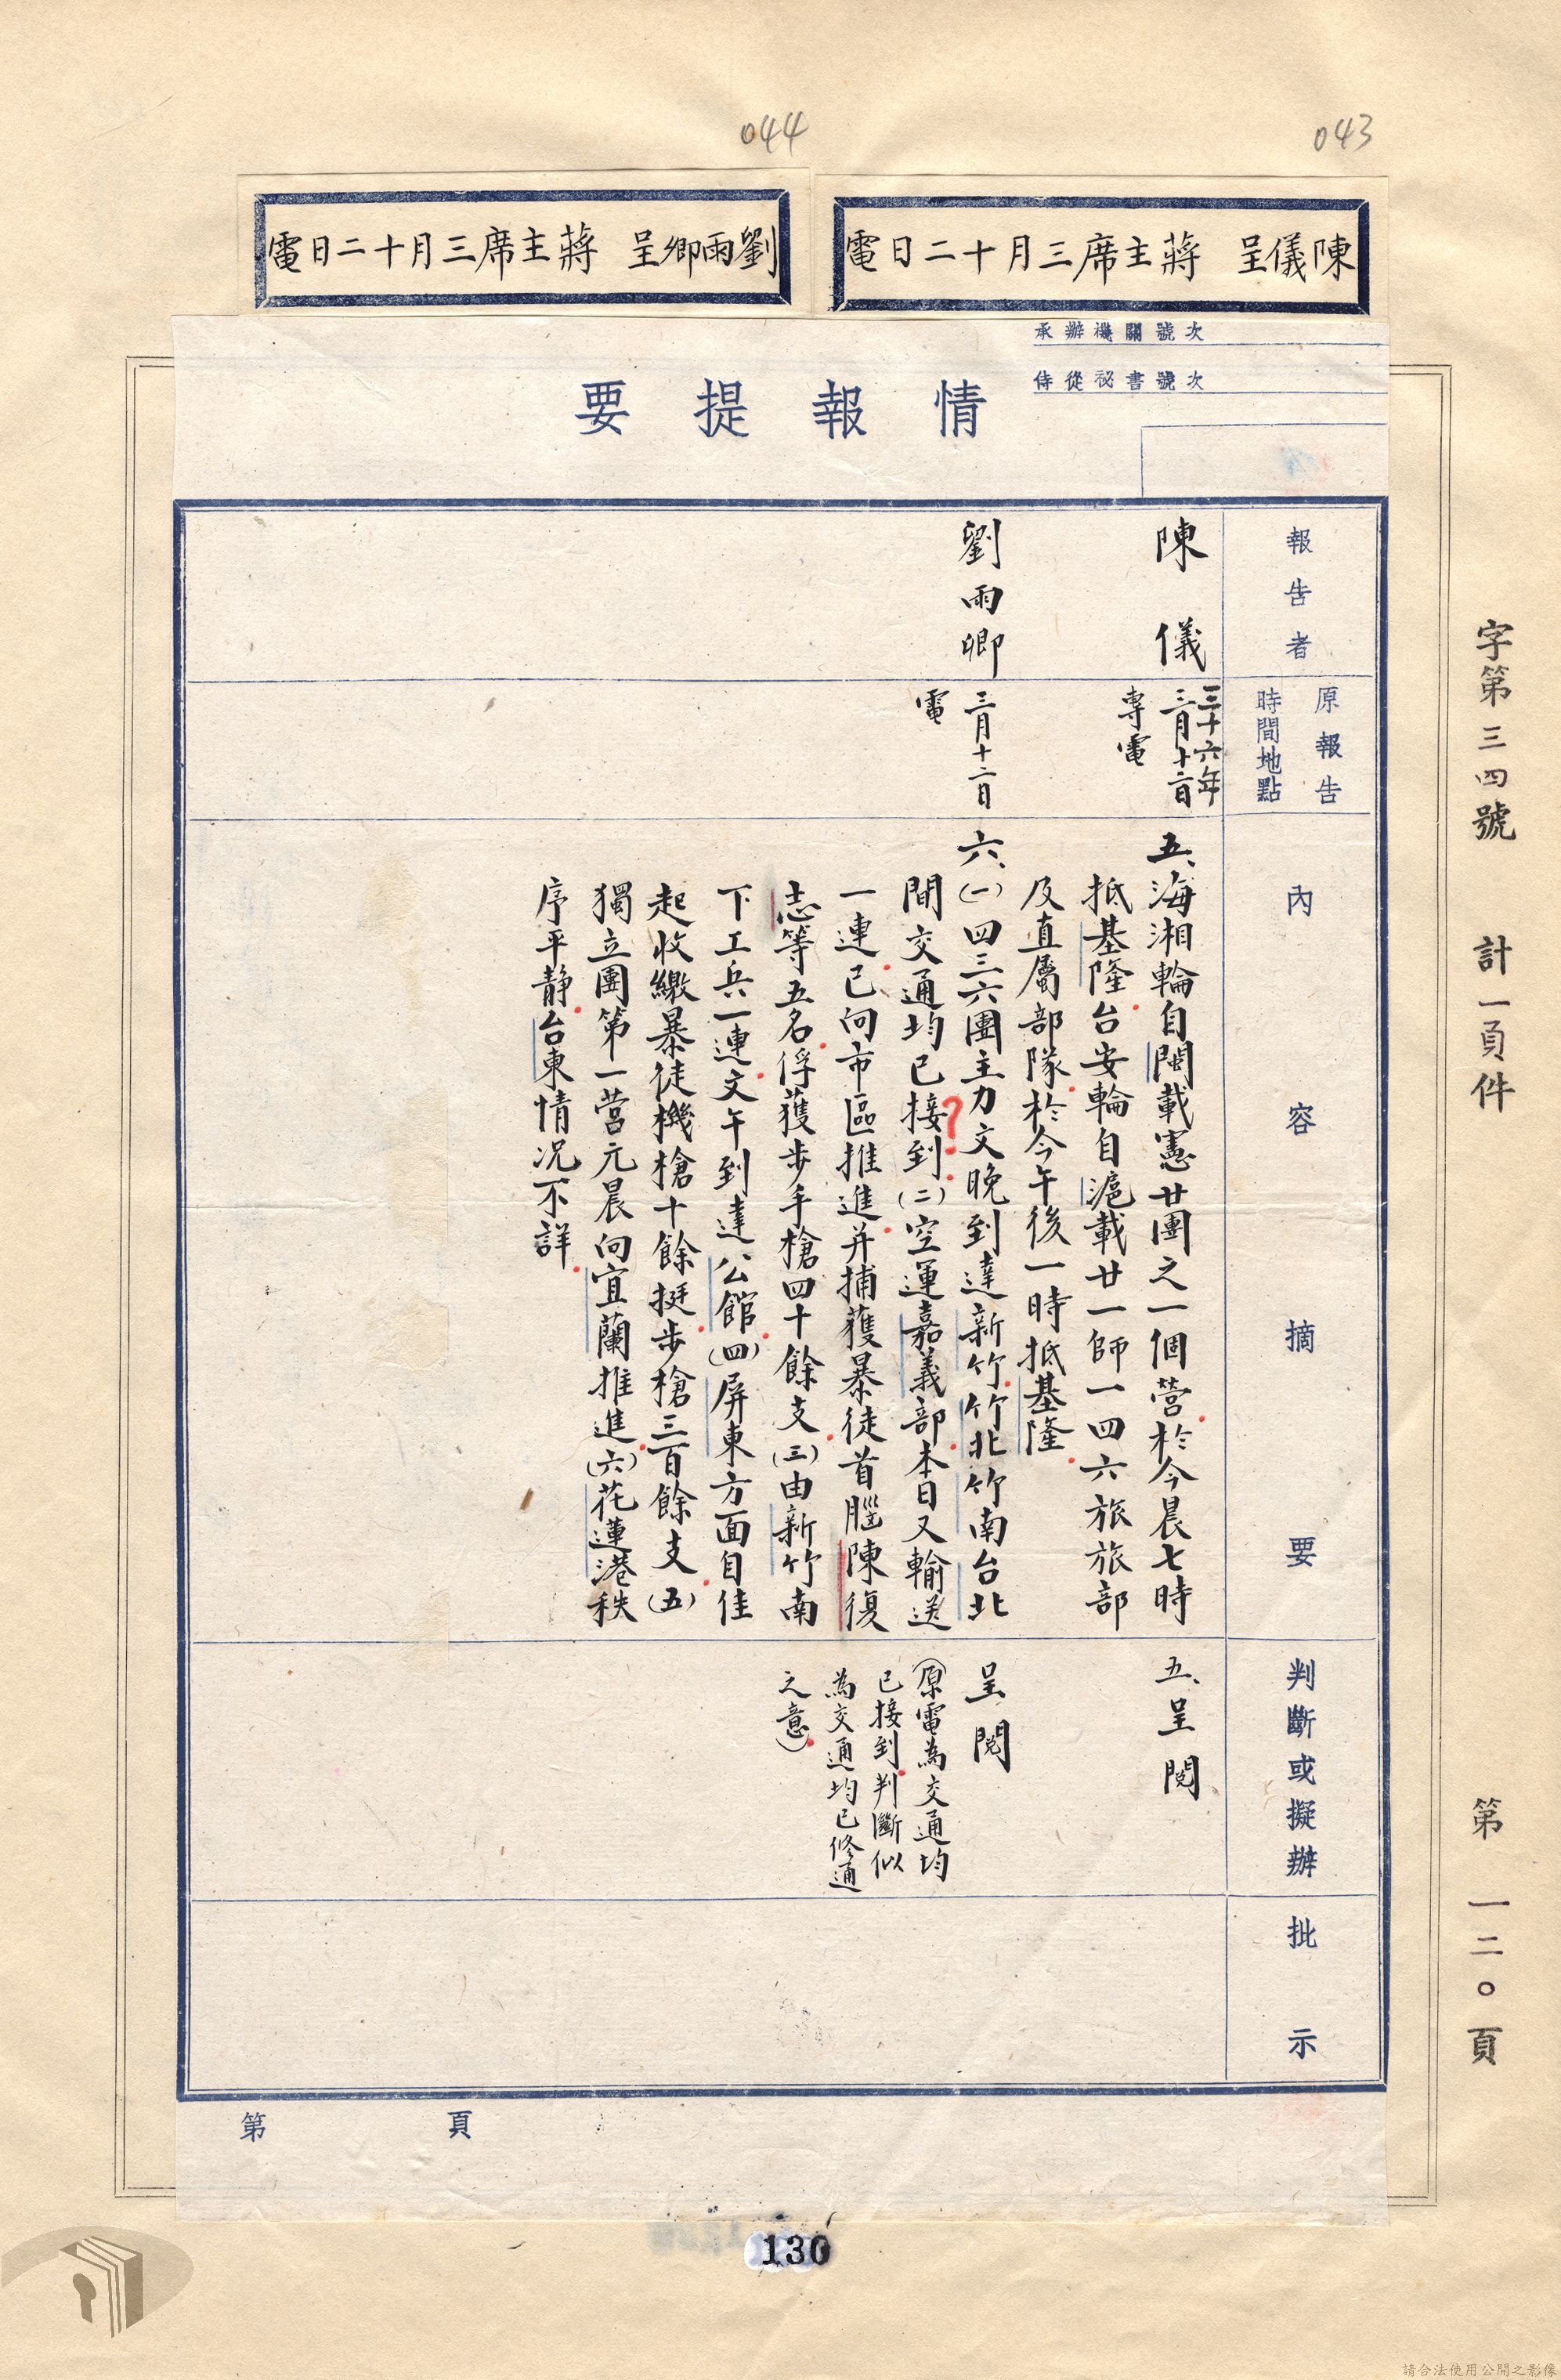 043
044
陳儀呈　蔣主席三月十二日電
劉雨卿呈　蔣主席三月十二日電
承辦機關號次
侍從祕書號次
情報提要
報告者
原報告
時間地點
內容摘要
判斷或擬辦
批示
陳儀
三十六年
三月十二日
專電
五、海湘輪自閩載憲廿團之一個營於今晨七時
抵基隆台安輪自滬載廿一師一四六旅旅部
及直屬部隊於今午後一時抵基隆
五、呈閱
劉雨卿
三月十二日
電
六、(一)四三六團主力文晚到達新竹竹北竹南台北
間交通均已接到(二)空運嘉義部本日又輸送
一連已向市區推進并捕獲暴徒首腦陳復
志等五名俘獲步手槍四十餘支(三)由新竹南
下工兵一連文午到達公館(四)屏東方面自佳
起收繳暴徒機槍十餘挺步槍三百餘支(五)
獨立團第一營元晨向宜蘭推進(六)花蓮港秩
序平靜台東情況不詳
?
呈閱
(原電為交通均
已接到判斷似
為交通均已修通
之意)
第　頁
字第三四號　計一頁件　第一二〇頁
130
請合法使用公開之影像